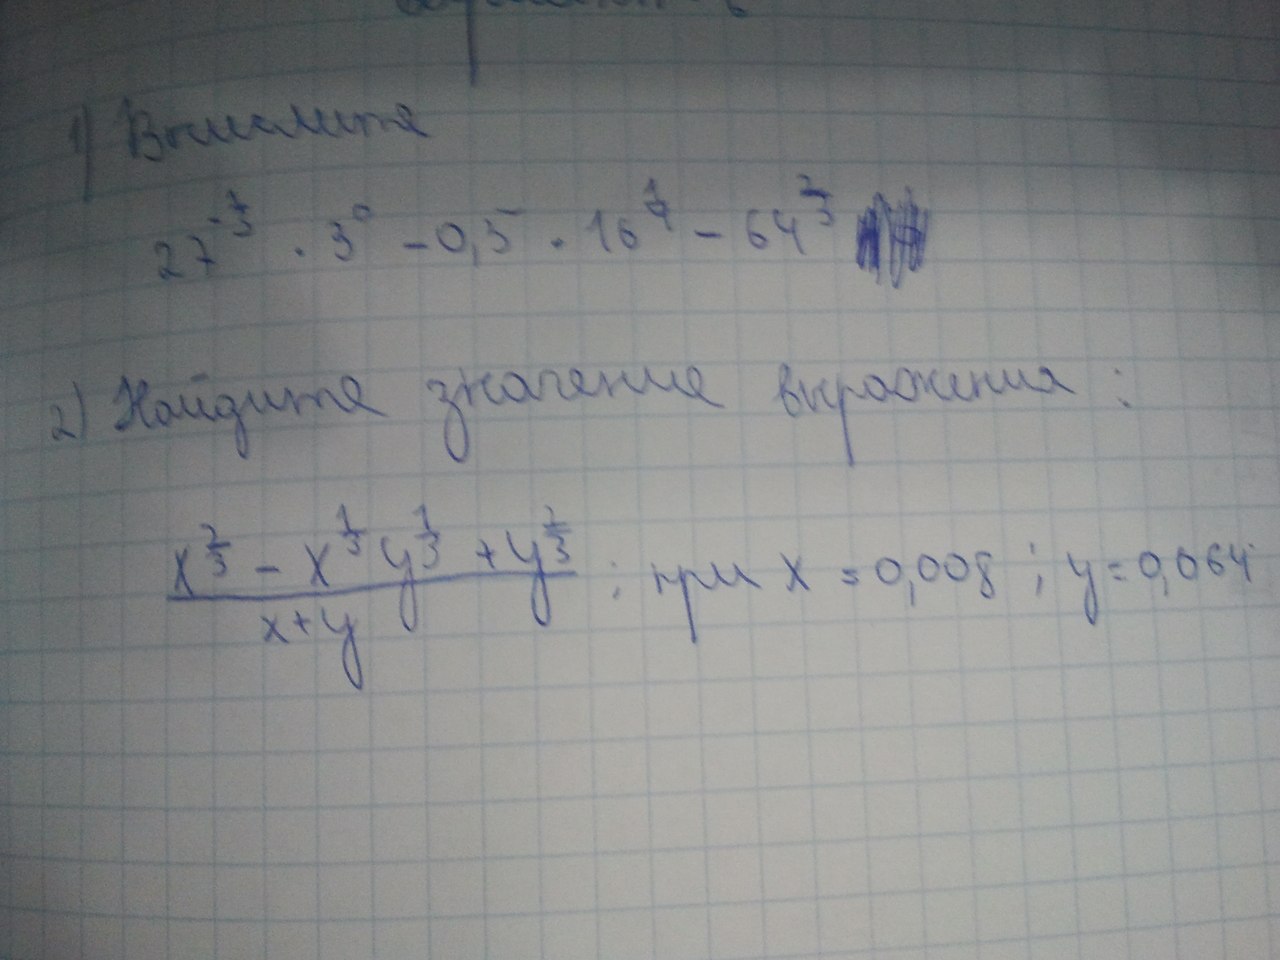 1) Вычислите
27^{-1/3} · 3^0 - 0,5 · 16^{1/4} - 64^{2/3}
2) Найдите значение выражения :
\frac{x^{2/3} - x^{1/3} y^{1/3} + y^{2/3}}{x+y} ; при x = 0,008 ; y = 0,064